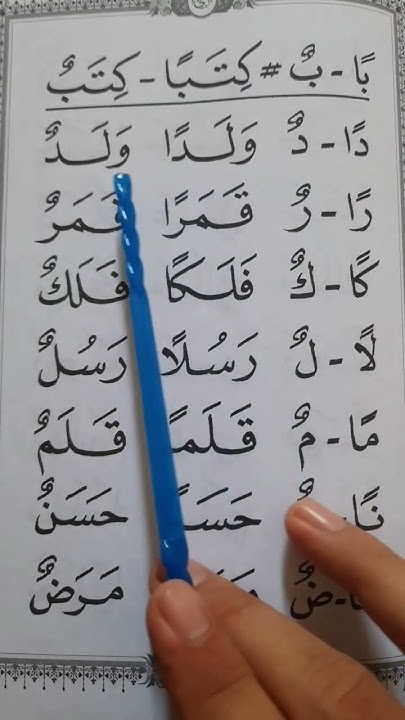 بًا - بٌ # كِتَبًا - كِتَبٌ
دًا - دٌ وَلَدًا وَلَدٌ
رًا - رٌ قَمَرًا قَمَرٌ
كًا - كٌ فَلَكًا فَلَكٌ
لًا - لٌ رَسُلًا رَسُلٌ
مًا - مٌ قَلَمًا قَلَمٌ
نًا - حَسَنٌ
- ضٌ مَرَضٌ